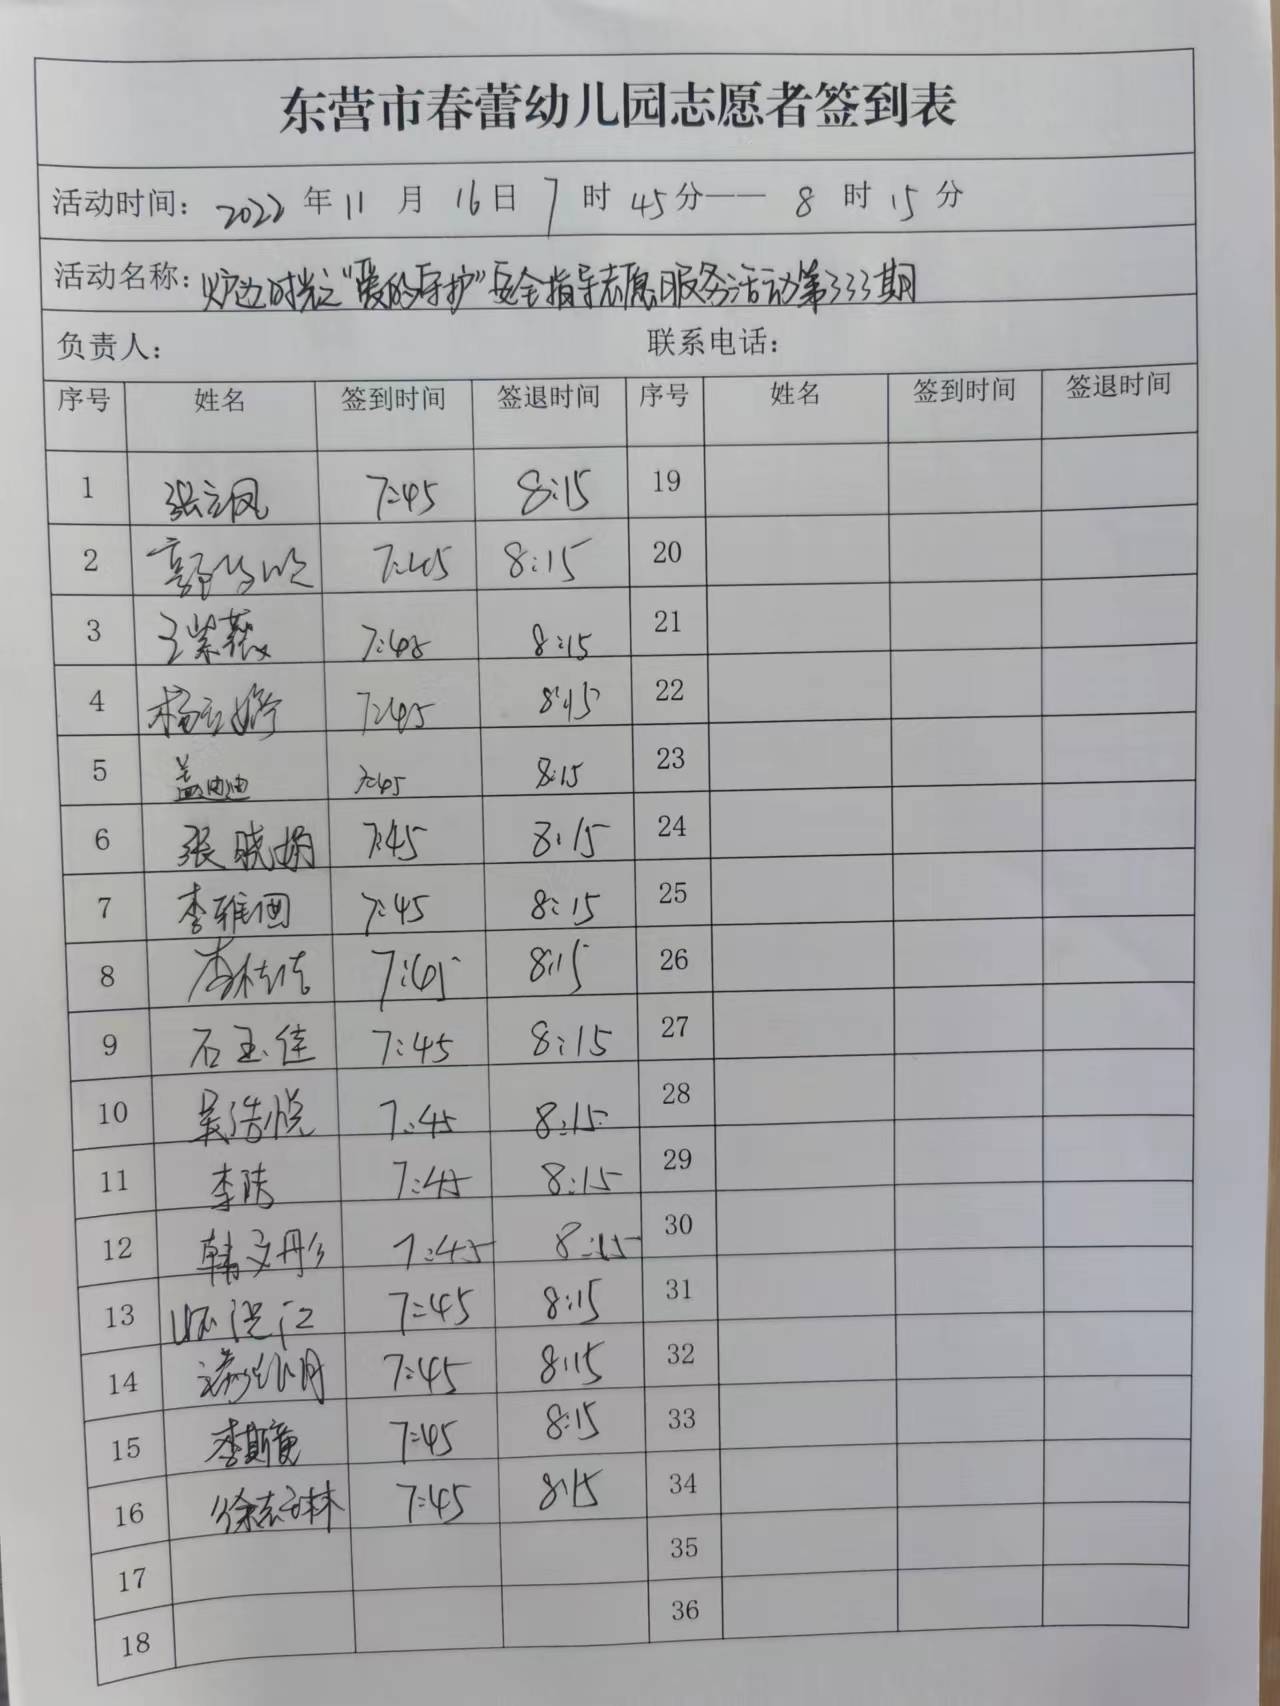 东营市春蕾幼儿园志愿者签到表
活动时间：2022 年 11 月 16日 7 时 45分—— 8 时 15 分
活动名称：炉边时光之“爱的守护”安全指导志愿服务活动第333期
负责人： 联系电话：
序号 姓名 签到时间 签退时间 序号 姓名 签到时间 签退时间
1 张立凤 7:45 8:15 19
2 7:45 8:15 20
3 王紫薇 7:45 8:15 21
4 杨立婷 7:45 8:15 22
5 盖迪迪 7:45 8:15 23
6 张晓娟 7:45 8:15 24
7 李雅囡 7:45 8:15 25
8 李桂洁 7:45 8:15 26
9 石玉佳 7:45 8:15 27
10 吴浩悦 7:45 8:15 28
11 李 7:45 8:15 29
12 韩文彤 7:45 8:15 30
13 7:45 8:15 31
14 7:45 8:15 32
15 7:45 8:15 33
16 徐志林 7:45 8:15 34
17 35
18 36